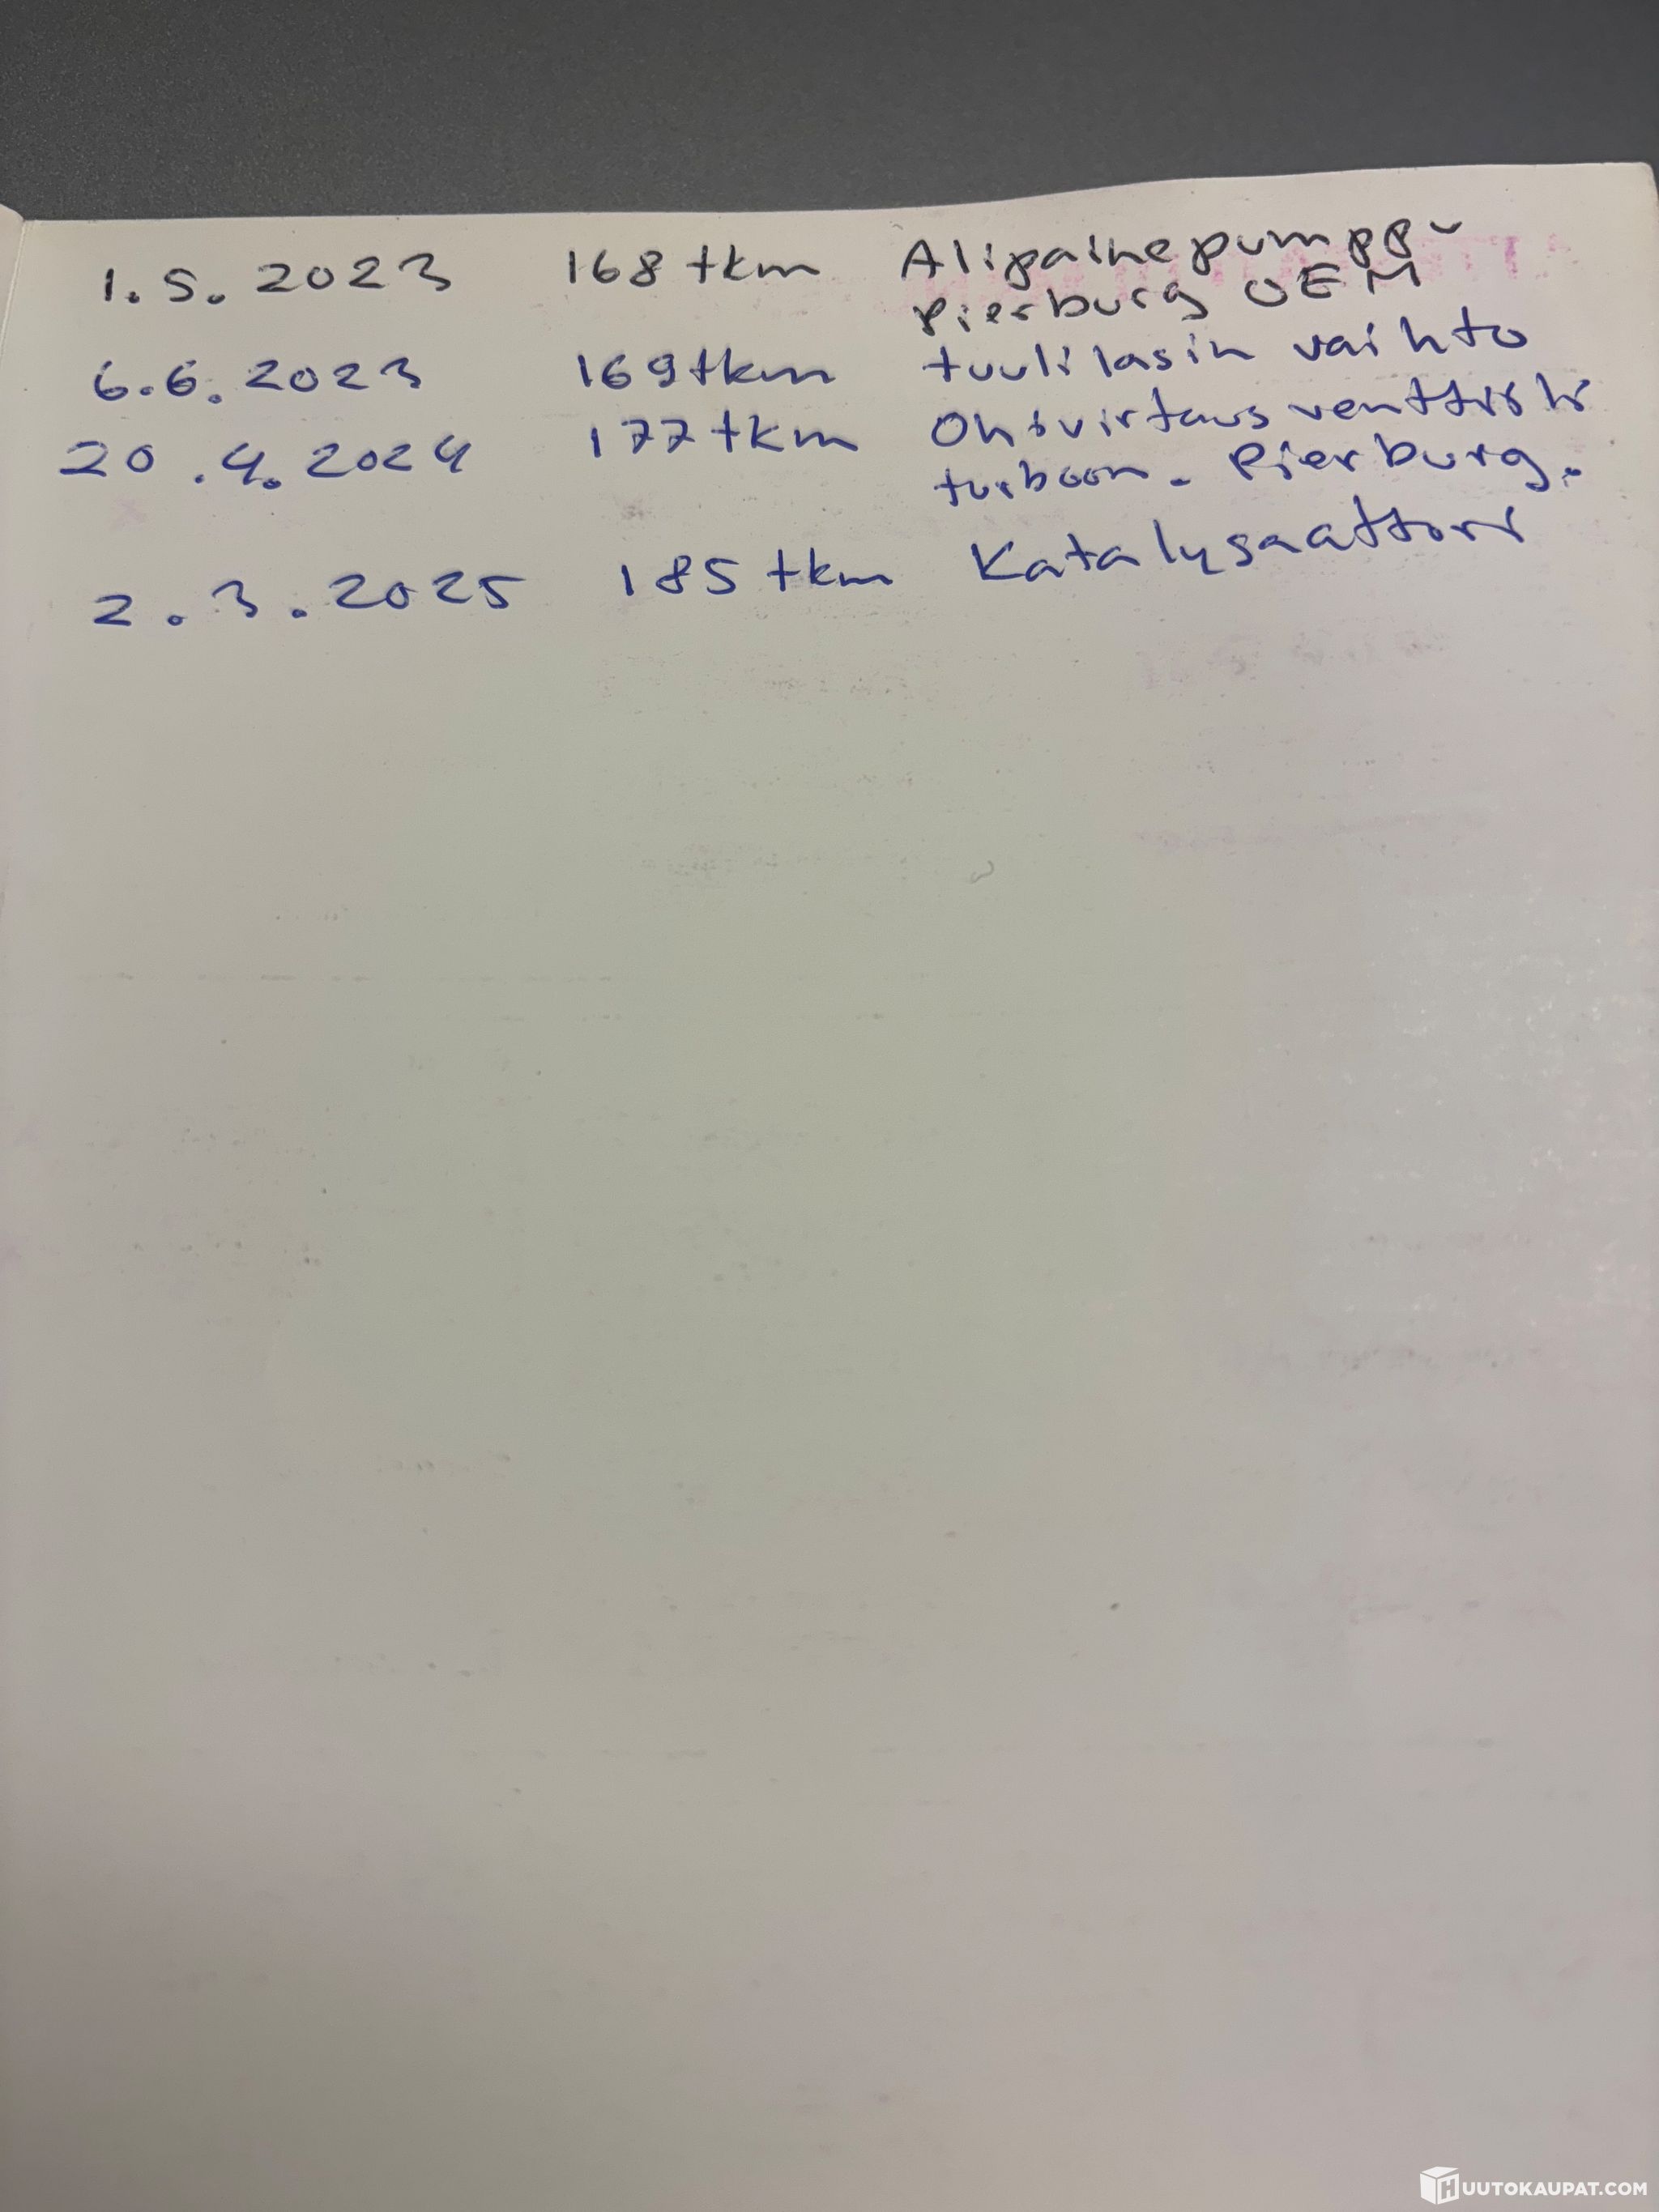 1.5.2023 168 tkm Alipainepumppu
Pierburg OEM
6.6.2023 169 tkm tuulilasin vaihto
20.4.2024 177 tkm Ohivirtausventtiili
turboon. Pierburg.
2.3.2025 185 tkm Katalysaattori
HUUTOKAUPAT.COM